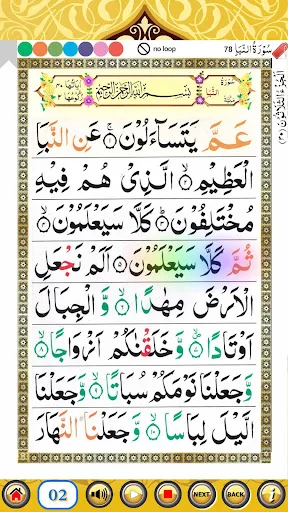 no loop
78 سُوْرَةُ النَّبَا
اَلْجُزْءُ الثَّلَاثُوْنَ (٣٠)
سُوْرَةُ النَّبَا مَكِّيَّةٌ
بِسْمِ اللّٰهِ الرَّحْمٰنِ الرَّحِيْمِ
اٰيَاتُهَا ٤٠
رُكُوْعُهَا ٢
عَمَّ يَتَسَآءَلُوْنَ ۝١ عَنِ النَّبَاِ
الْعَظِيْمِ ۝٢ الَّذِيْ هُمْ فِيْهِ
مُخْتَلِفُوْنَ ۝٣ كَلَّا سَيَعْلَمُوْنَ ۝٤
ثُمَّ كَلَّا سَيَعْلَمُوْنَ ۝٥ اَلَمْ نَجْعَلِ
الْاَرْضَ مِهٰدًا ۝٦ وَّالْجِبَالَ
اَوْتَادًا ۝٧ وَّخَلَقْنٰكُمْ اَزْوَاجًا ۝٨
وَّجَعَلْنَا نَوْمَكُمْ سُبَاتًا ۝٩ وَّجَعَلْنَا
الَّيْلَ لِبَاسًا ۝١٠ وَّجَعَلْنَا النَّهَارَ
02
PLAY
STOP
NEXT
BACK